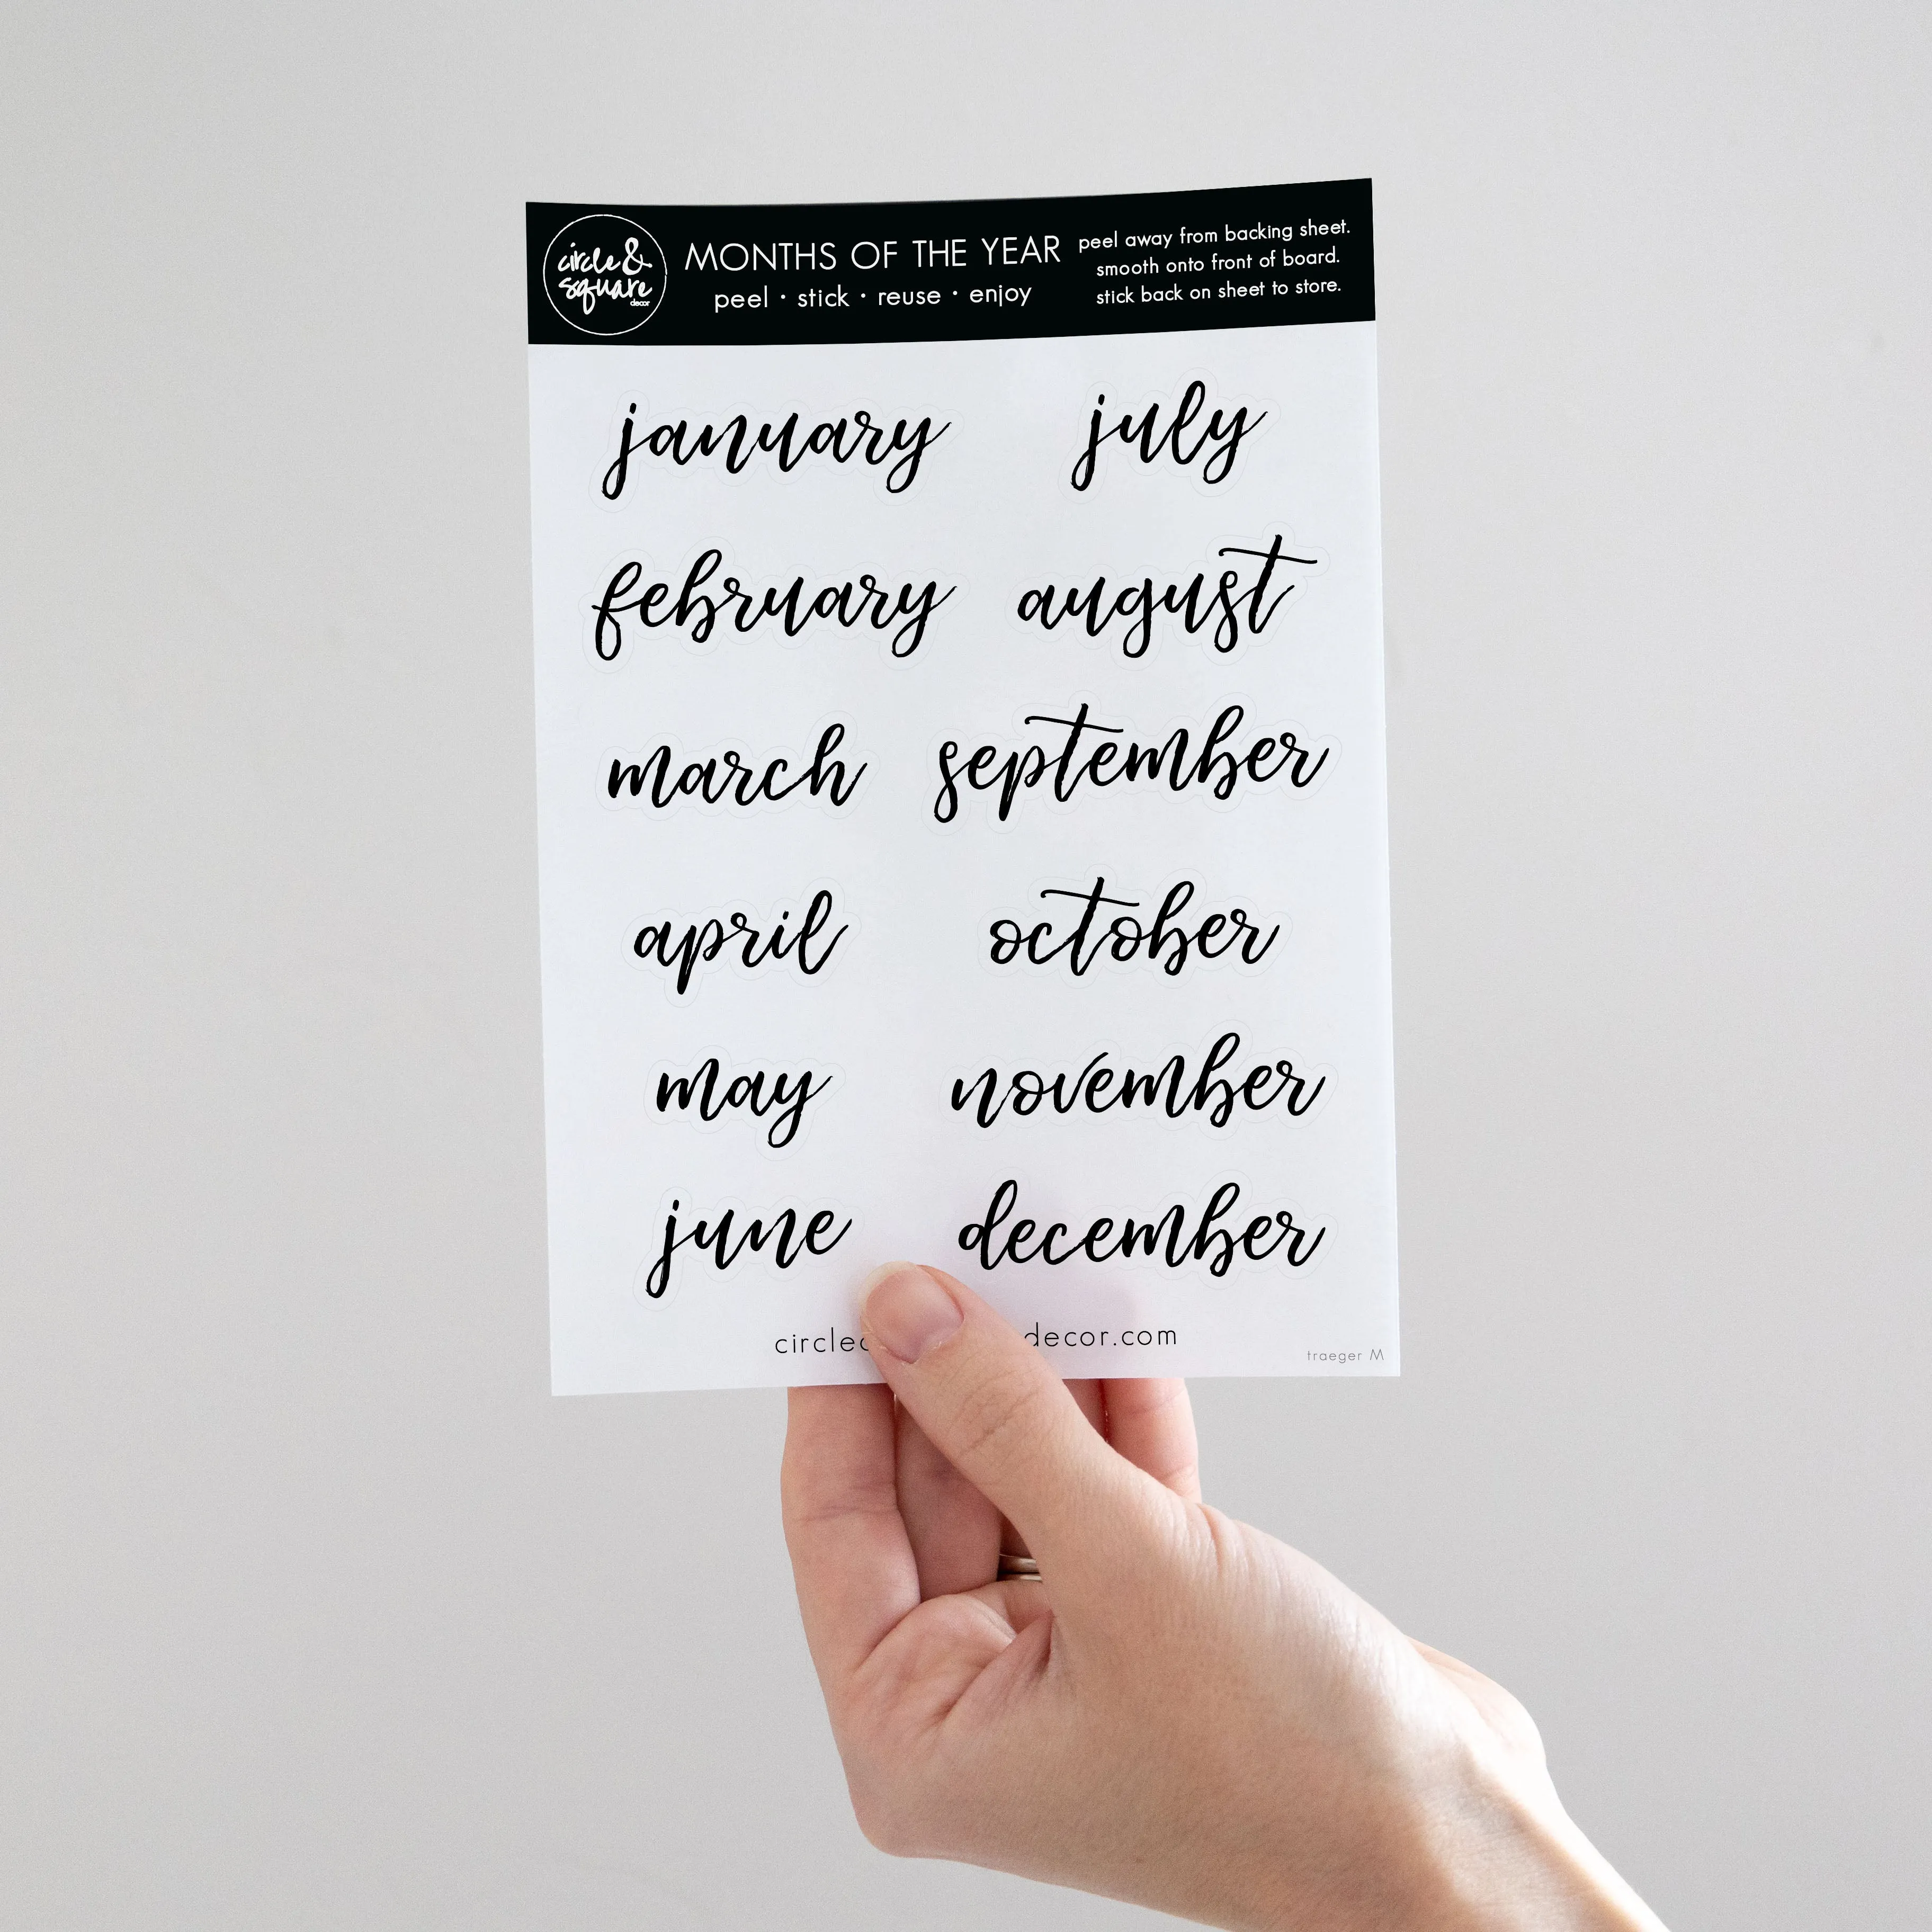 circle &
square
decor
MONTHS OF THE YEAR
peel • stick • reuse • enjoy
peel away from backing sheet.
smooth onto front of board.
stick back on sheet to store.
january
february
march
april
may
june
july
august
september
october
november
december
decor.com
traeger M